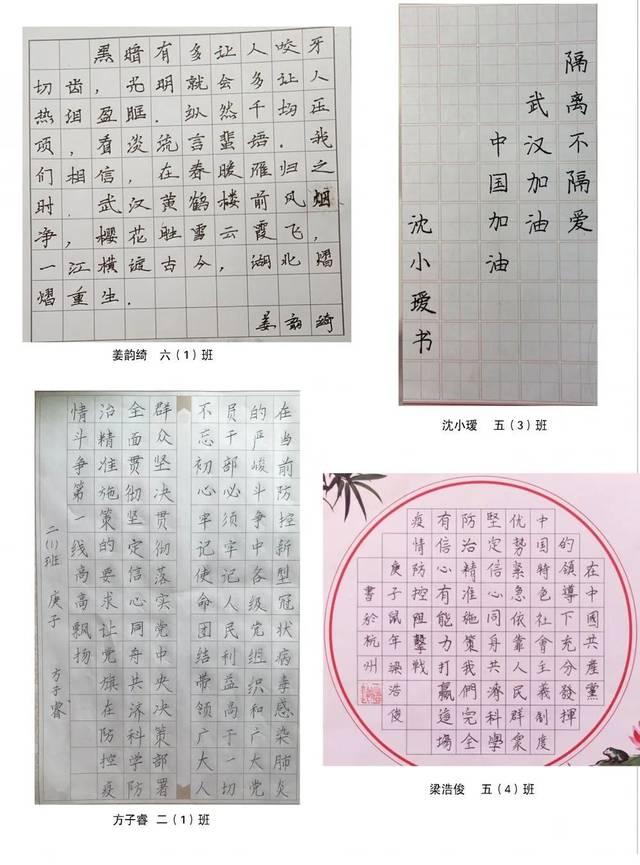 黑暗有多让人咬牙
切齿，光明就会多让人
热泪盈眶．纵然千均压
顶，看淡流言蜚语．我
们相信，在春暖雁归之
时．武汉黄鹤楼前风烟
争，樱花胜雪云霞飞，
一江横渡古今，湖北熠
熠重生．
姜韵绮
姜韵绮 六（1）班
隔离不隔爱
武汉加油
中国加油
沈小瑷书
沈小瑷 五（3）班
在当前防控新型冠状病毒感染肺炎
的严峻斗争中各级党组织和广大党
员干部必须牢记人民利益高于一切
不忘初心牢记使命团结带领广大人
群众坚决贯彻落实党中央决策部署
全面贯彻坚定信心同舟共济科学防
治精准施策的要求让党旗在防控疫
情斗争第一线高高飘扬
二(1)班 庚子 方子睿
方子睿 二（1）班
在中國共產黨
的領導下充分發揮
中国特色社會主義制度
优勢緊急依靠人民群衆
堅定信心同舟共濟科學
防治精准施策我們完全
有信心有能力打贏這場
疫情防控阻擊戰
庚子鼠年梁浩俊
書於杭州
梁浩俊 五（4）班